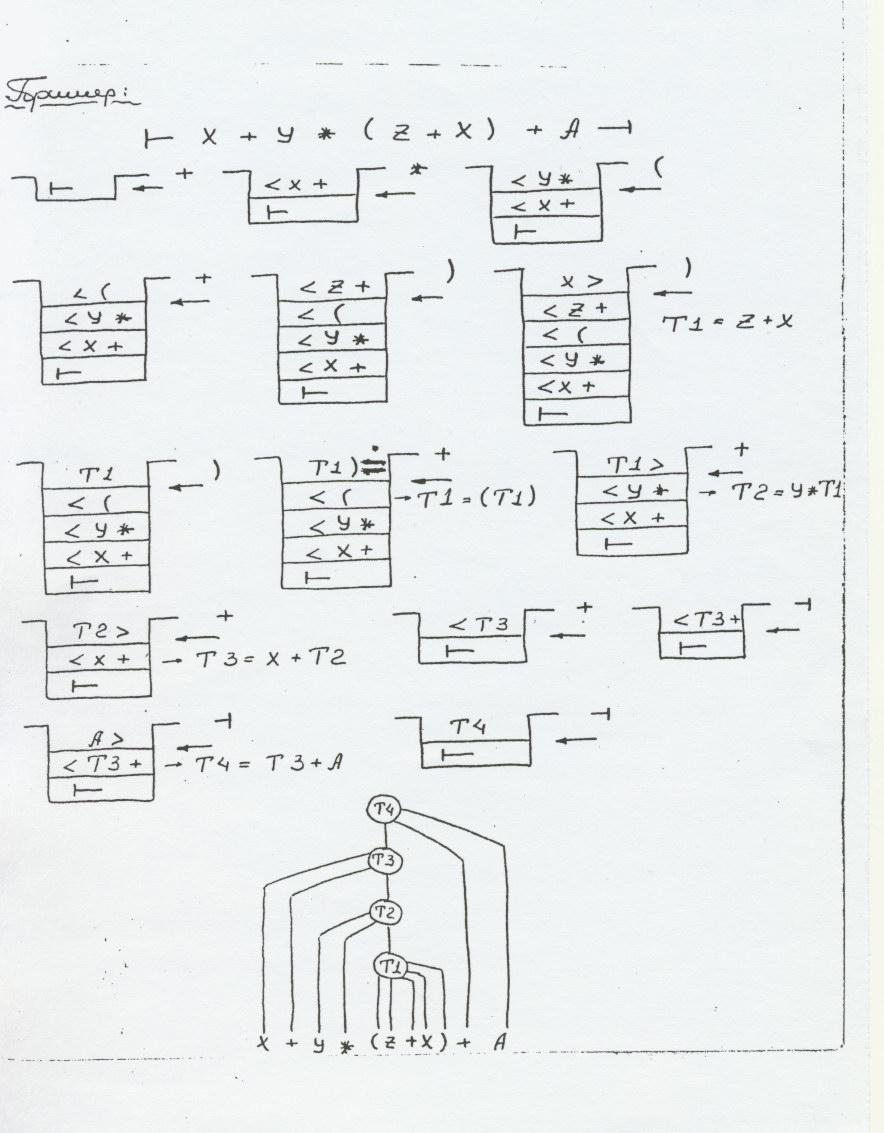 Пример:
⊢ X + Y * ( Z + X ) + A ⊣
⊢ +
< X + *
⊢
< Y * (
< X +
⊢
< ( +
< Y *
< X +
⊢
< Z + )
< (
< Y *
< X +
⊢
X > )
< Z +
< ( T1 = Z + X
< Y *
< X +
⊢
T1 )
< (
< Y *
< X +
⊢
T1 ) ≐ +
< ( → T1 = (T1)
< Y *
< X +
⊢
T1 > +
< Y * → T2 = Y * T1
< X +
⊢
T2 > +
< X + → T3 = X + T2
⊢
< T3 +
⊢
< T3 + ⊣
⊢
A > ⊣
< T3 + → T4 = T3 + A
⊢
T4 ⊣
⊢
T4
T3
T2
T1
X + Y * ( Z + X ) + A